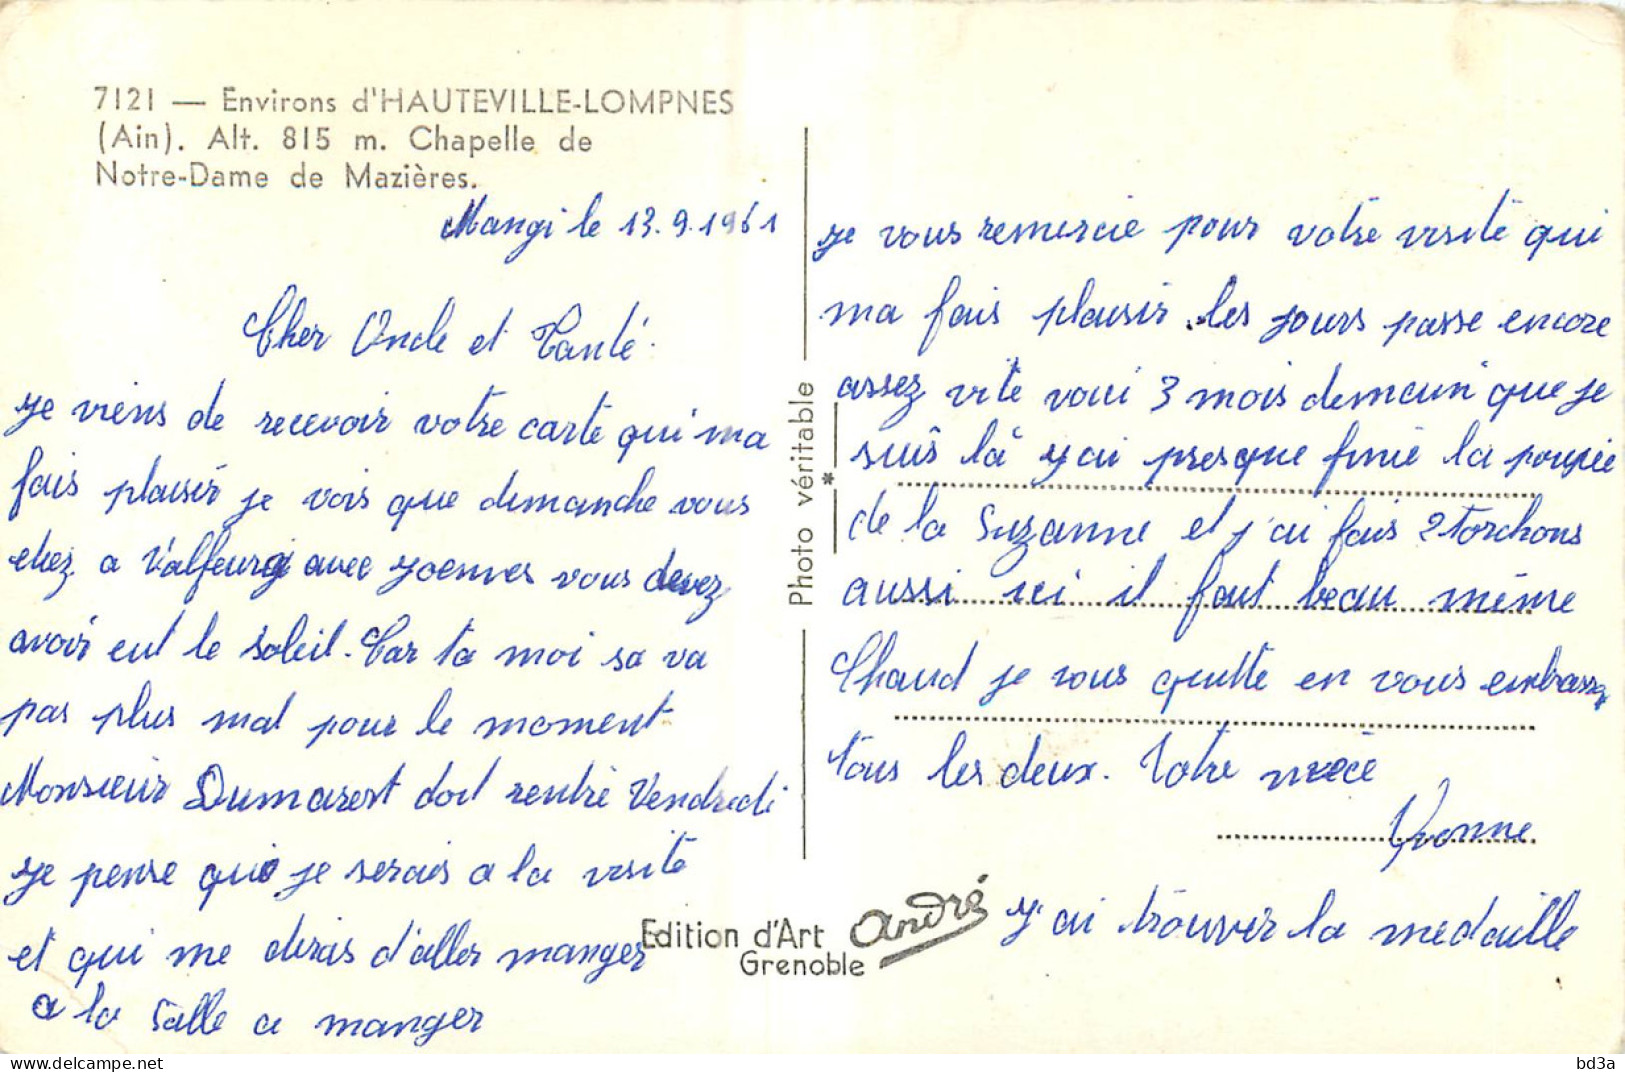 7121 — Environs d'HAUTEVILLE-LOMPNES
(Ain). Alt. 815 m. Chapelle de
Notre-Dame de Mazières.
Mangi le 13.9.1961
Cher Oncle et Tante.
je viens de recevoir votre carte qui ma
fais plaisir je vois que dimanche vous
etiez a avec vous devez
avoir eut le soleil. Car ta moi sa va
pas plus mal pour le moment
Monsieur doit rentre Vendredi
je pense que je serais a la visite
et qui me diras d'aller manger
a la salle a manger
Photo véritable
*
je vous remercie pour votre visite qui
ma fais plaisir les jours passe encore
assez vite voici 3 mois demain que je
suis là j'ai presque finie la poupée
de la Suzanne et j'ai fais 2 torchons
aussi ici il fait beau même
Chaud je vous quitte en vous embrassa
tous les deux. Votre niece
Yvonne
Edition d'Art André
Grenoble
j'ai trouver la medaille
bd3a